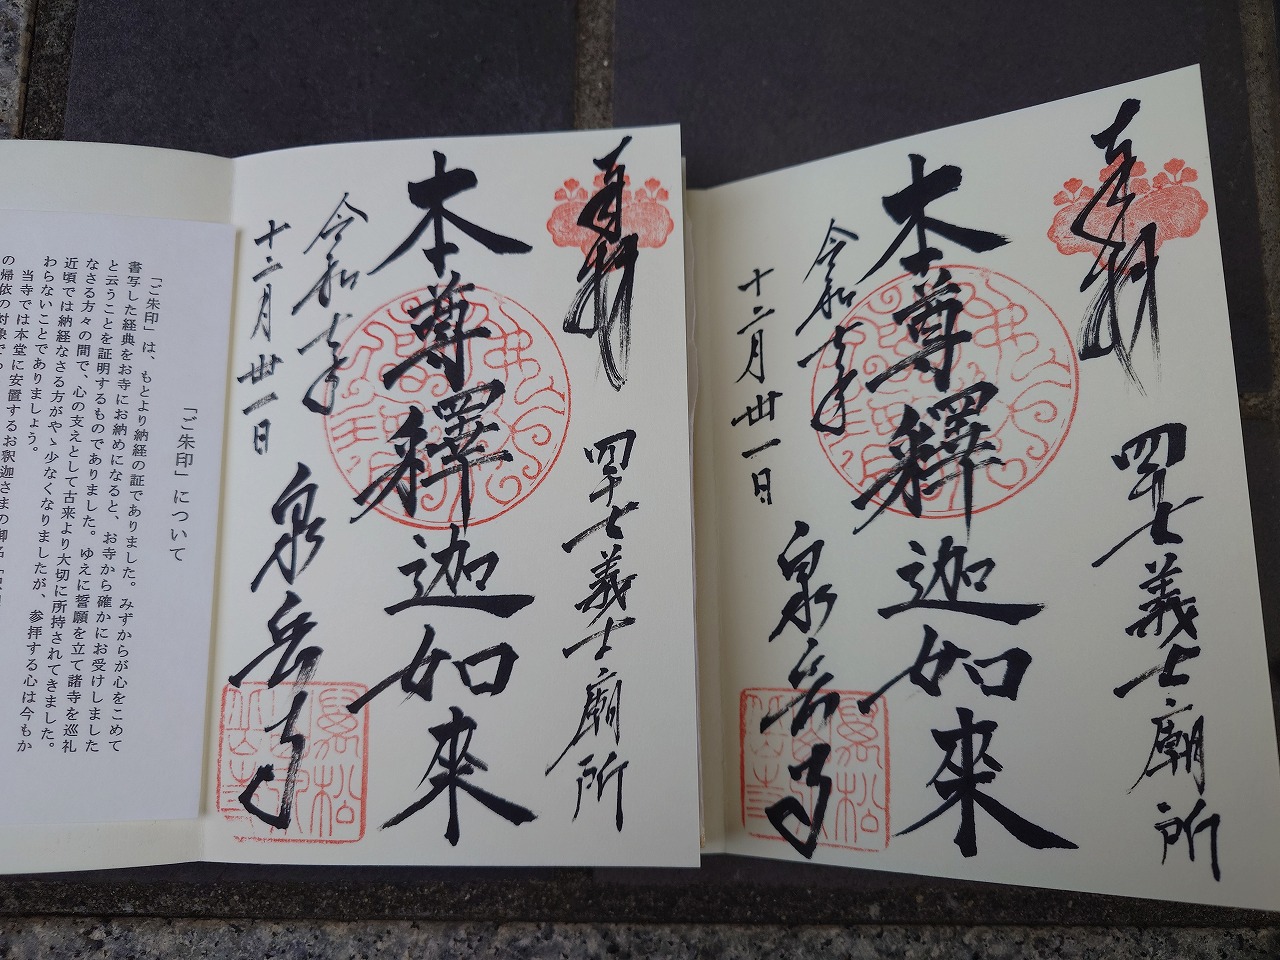 奉拝
四十七義士廟所
本尊釋迦如來
令和七年
十二月卅一日
泉岳寺
奉拝
四十七義士廟所
本尊釋迦如來
令和七年
十二月卅一日
泉岳寺
「ご朱印」について
「ご朱印」は、もとより納経の証でありました。みずからが心をこめて
書写した経典をお寺にお納めになると、お寺から確かにお受けしました
と云うことを証明するものでありました。ゆえに誓願を立て諸寺を巡礼
なさる方々の間で、心の支えとして古来より大切に所持されてきました。
近頃では納経なさる方がやゝ少なくなりましたが、参拝する心は今もか
わらないことでありましょう。
当寺では本堂に安置するお釈迦さまの御名「
の帰依の対象で